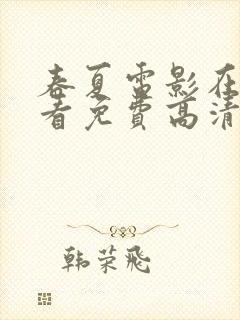 春夏雷影在
看免费高清
韩荣飛